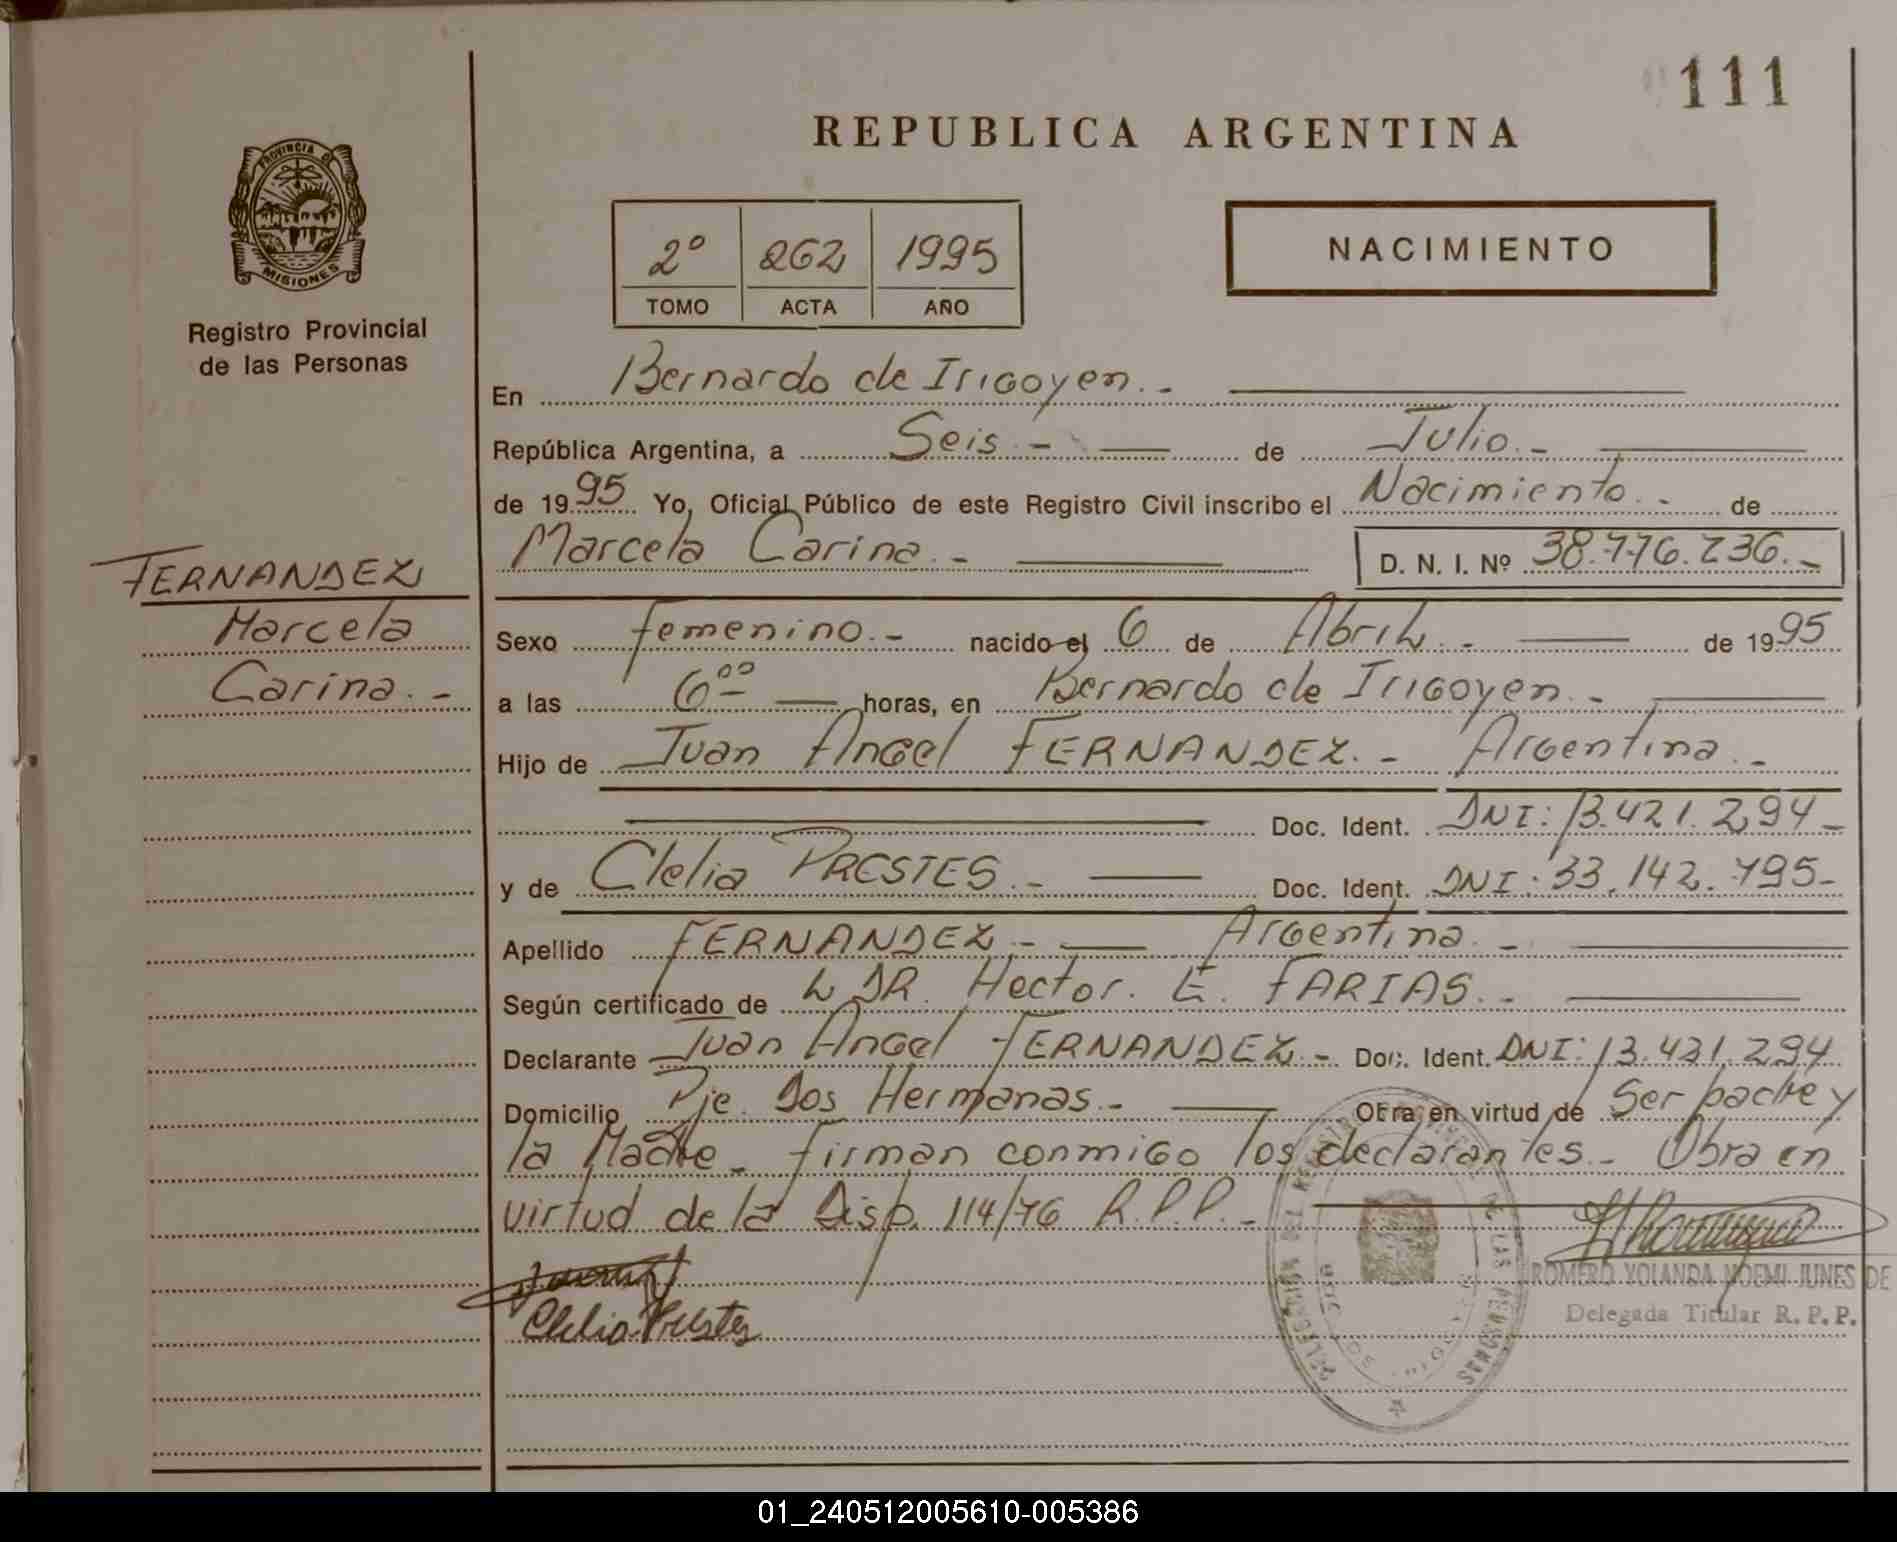 111
REPUBLICA ARGENTINA
PROVINCIA DE
MISIONES
Registro Provincial
de las Personas
2º 262 1995
TOMO ACTA AÑO
NACIMIENTO
En Bernardo de Irigoyen.-
República Argentina, a Seis.- de Julio.-
de 1995 Yo, Oficial Público de este Registro Civil inscribo el Nacimiento.- de
Marcela Carina.- D. N. I. Nº 38.776.236.-
FERNANDEZ
Marcela
Carina.-
Sexo femenino.- nacido el 6 de Abril.- de 1995
a las 6:00 horas, en Bernardo de Irigoyen.-
Hijo de Juan Angel FERNANDEZ.- Argentina.-
Doc. Ident. DNI: 13.421.294-
y de Clelia PRESTES.- Doc. Ident. DNI: 33.142.795-
Apellido FERNANDEZ.- Argentina.-
Según certificado de L DR. Hector. E. FARIAS.-
Declarante Juan Angel FERNANDEZ.- Doc. Ident. DNI: 13.421.294
Domicilio Pje. Dos Hermanas.- Obra en virtud de Ser padre y
la Madre.- firman conmigo los declarantes.- Obra en
virtud de la Disp. 114/76 R.P.P.-
Clelia Prestes
ROMERO YOLANDA NOEMI JUNES DE
Delegada Titular R. P. P.
DELEGACION DEL REGISTRO PROVINCIAL DE LAS PERSONAS
01_240512005610-005386